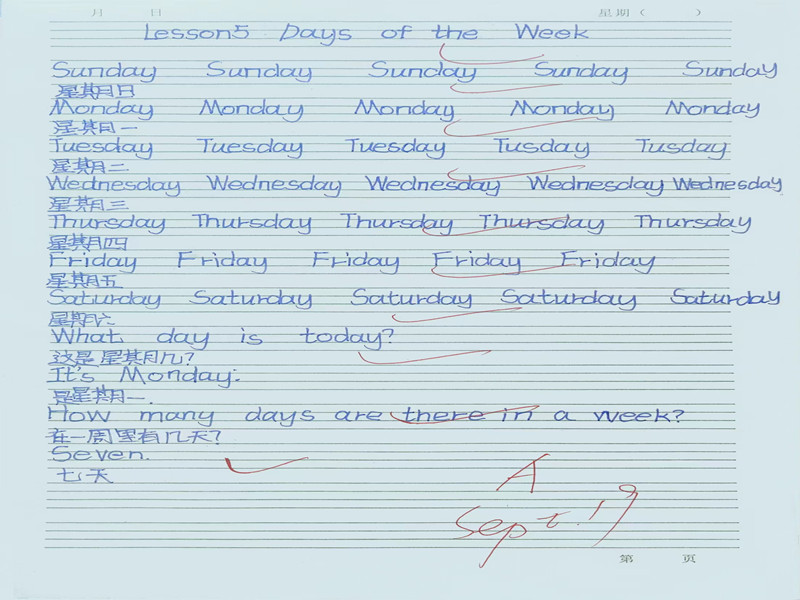 月 日 星期（ ）
Lesson5 Days of the Week
Sunday Sunday Sunday Sunday Sunday
星期日
Monday Monday Monday Monday Monday
星期一
Tuesday Tuesday Tuesday Tusday Tusday
星期二
Wednesday Wednesday Wednesday Wednesday Wednesday
星期三
Thursday Thursday Thursday Thursday Thursday
星期四
Friday Friday Friday Friday Friday
星期五
Saturday Saturday Saturday Saturday Saturday
星期六
What day is today?
这是星期几?
It's Monday.
是星期一.
How many days are there in a week?
在一周里有几天?
Seven.
七天
A
Sept.19
第 页